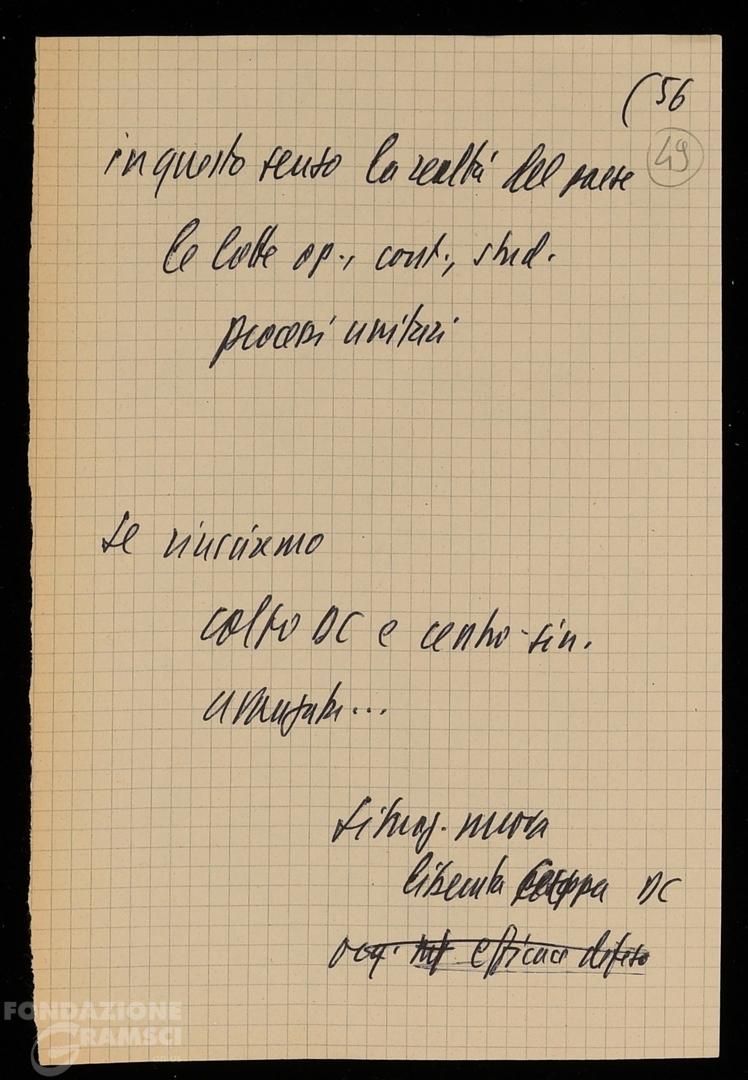 (56
49
in questo senso la realtà del paese
le lotte op., cont., stud.
processi unitari
se riusciamo
colpo DC e centro-sin.
avanzata...
situaz. nuova
liberata cappa DC
occ. efficace difesa
FONDAZIONE
GRAMSCI